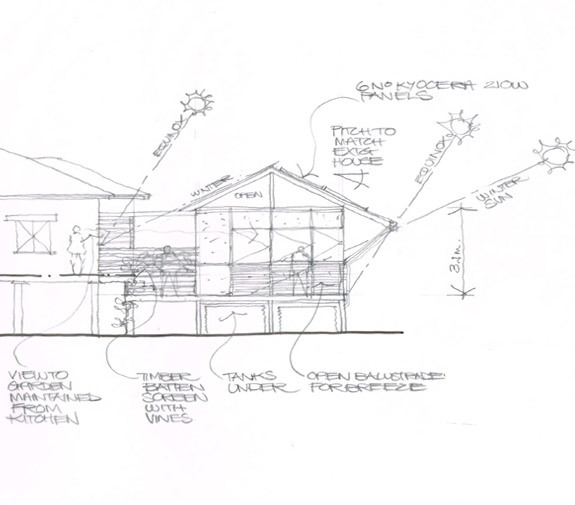 6 Nº KYOCERA 210W
PANELS
PITCH TO
MATCH
EXTG
HOUSE
EQUINOX
EQUINOX
WINTER
SUN
WINTER
OPEN
VIEW TO
GARDEN
MAINTAINED
FROM
KITCHEN
TIMBER
BATTEN
SCREEN
WITH
VINES
TANKS
UNDER
OPEN BALUSTRADE
FOR BREEZE